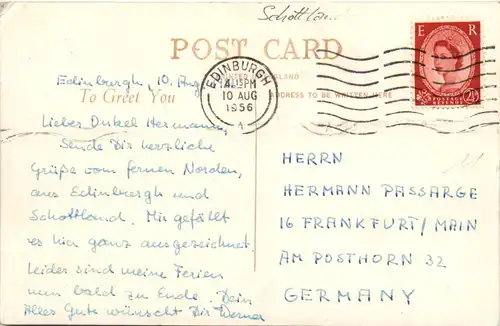 Schottland
POST CARD
E R
POSTAGE REVENUE
2½D
EDINBURGH
4.15PM
10 AUG
1956
A
PRINTED IN ENGLAND
Edinburgh, 10. Aug
To Greet You
ADDRESS TO BE WRITTEN HERE
Lieber Onkel Hermann,
Sende Dir herzliche
Grüße vom fernen Norden,
aus Edinburgh und
Schottland. Mir gefällt
es hier ganz ausgezeichnet.
Leider sind meine Ferien
nun bald zu Ende. Dein
Alles Gute wünscht Dir Werner
HERRN
HERMANN PASSARGE
16 FRANKFURT/MAIN
AM POSTHORN 32
GERMANY